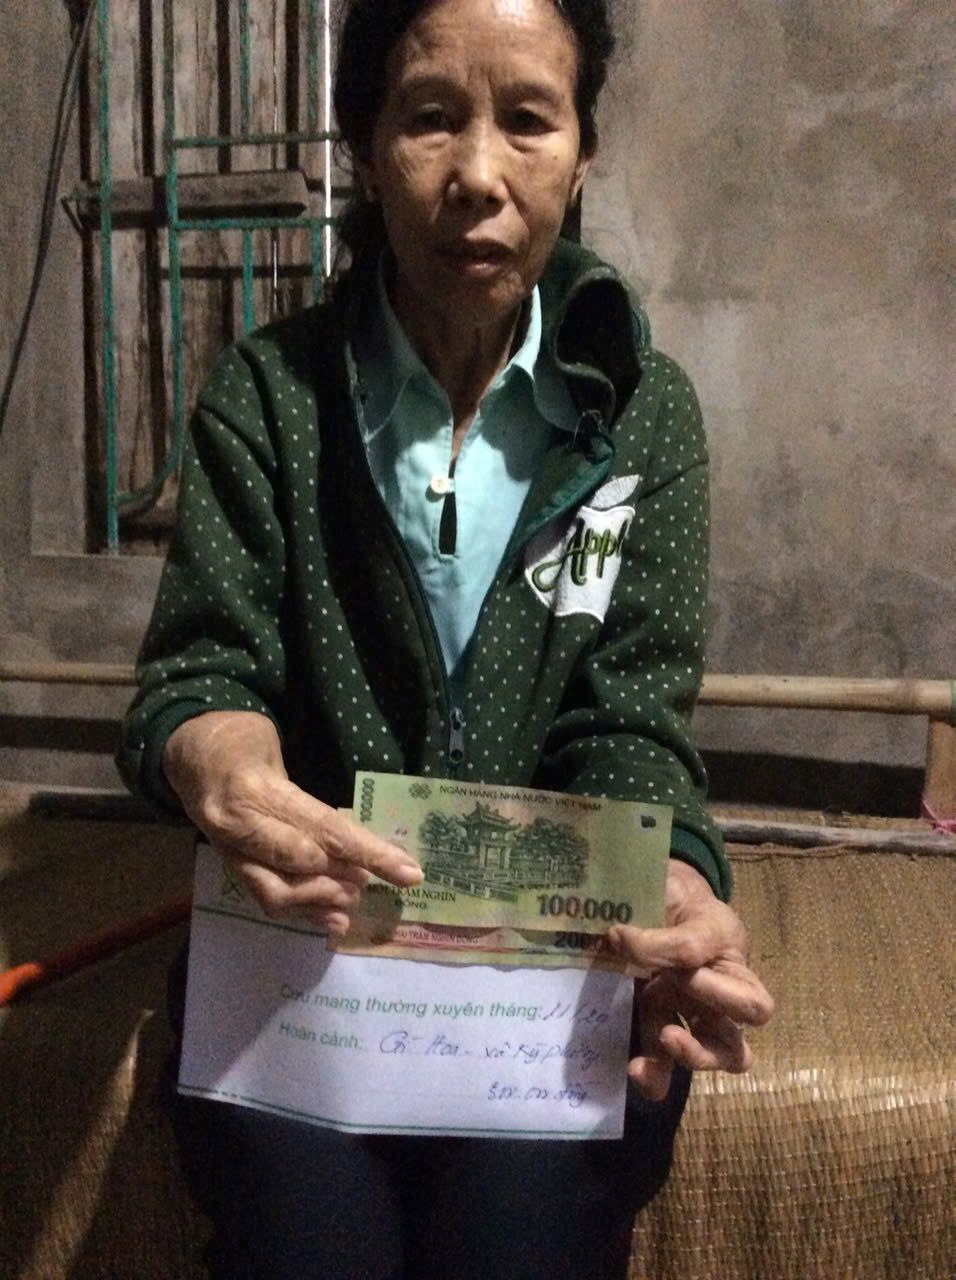 Appl
100.000
NGÂN HÀNG NHÀ NƯỚC VIỆT NAM
MỘT TRĂM NGHÌN
ĐỒNG
100.000
HAI TRĂM NGHÌN ĐỒNG
200.0
Cưu mang thường xuyên tháng: 11/20
Hoàn cảnh: Hoa - xã Kỳ Phương
đồng